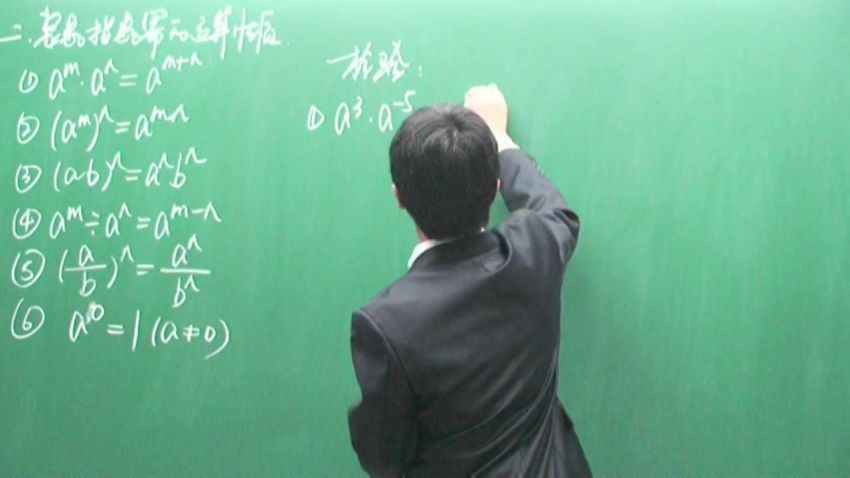 二.整数指数幂的运算性质.
① aᵐ·aⁿ=aᵐ⁺ⁿ
② (aᵐ)ⁿ=aᵐⁿ
③ (ab)ⁿ=aⁿbⁿ
④ aᵐ÷aⁿ=aᵐ⁻ⁿ
⑤ (a/b)ⁿ=aⁿ/bⁿ
⑥ a⁰=1(a≠0)
检验:
① a³·a⁻⁵